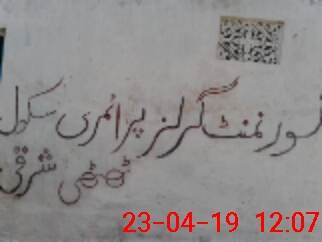 گورنمنٹ گرلز پرائمری سکول
شرقی
23-04-19 12:07